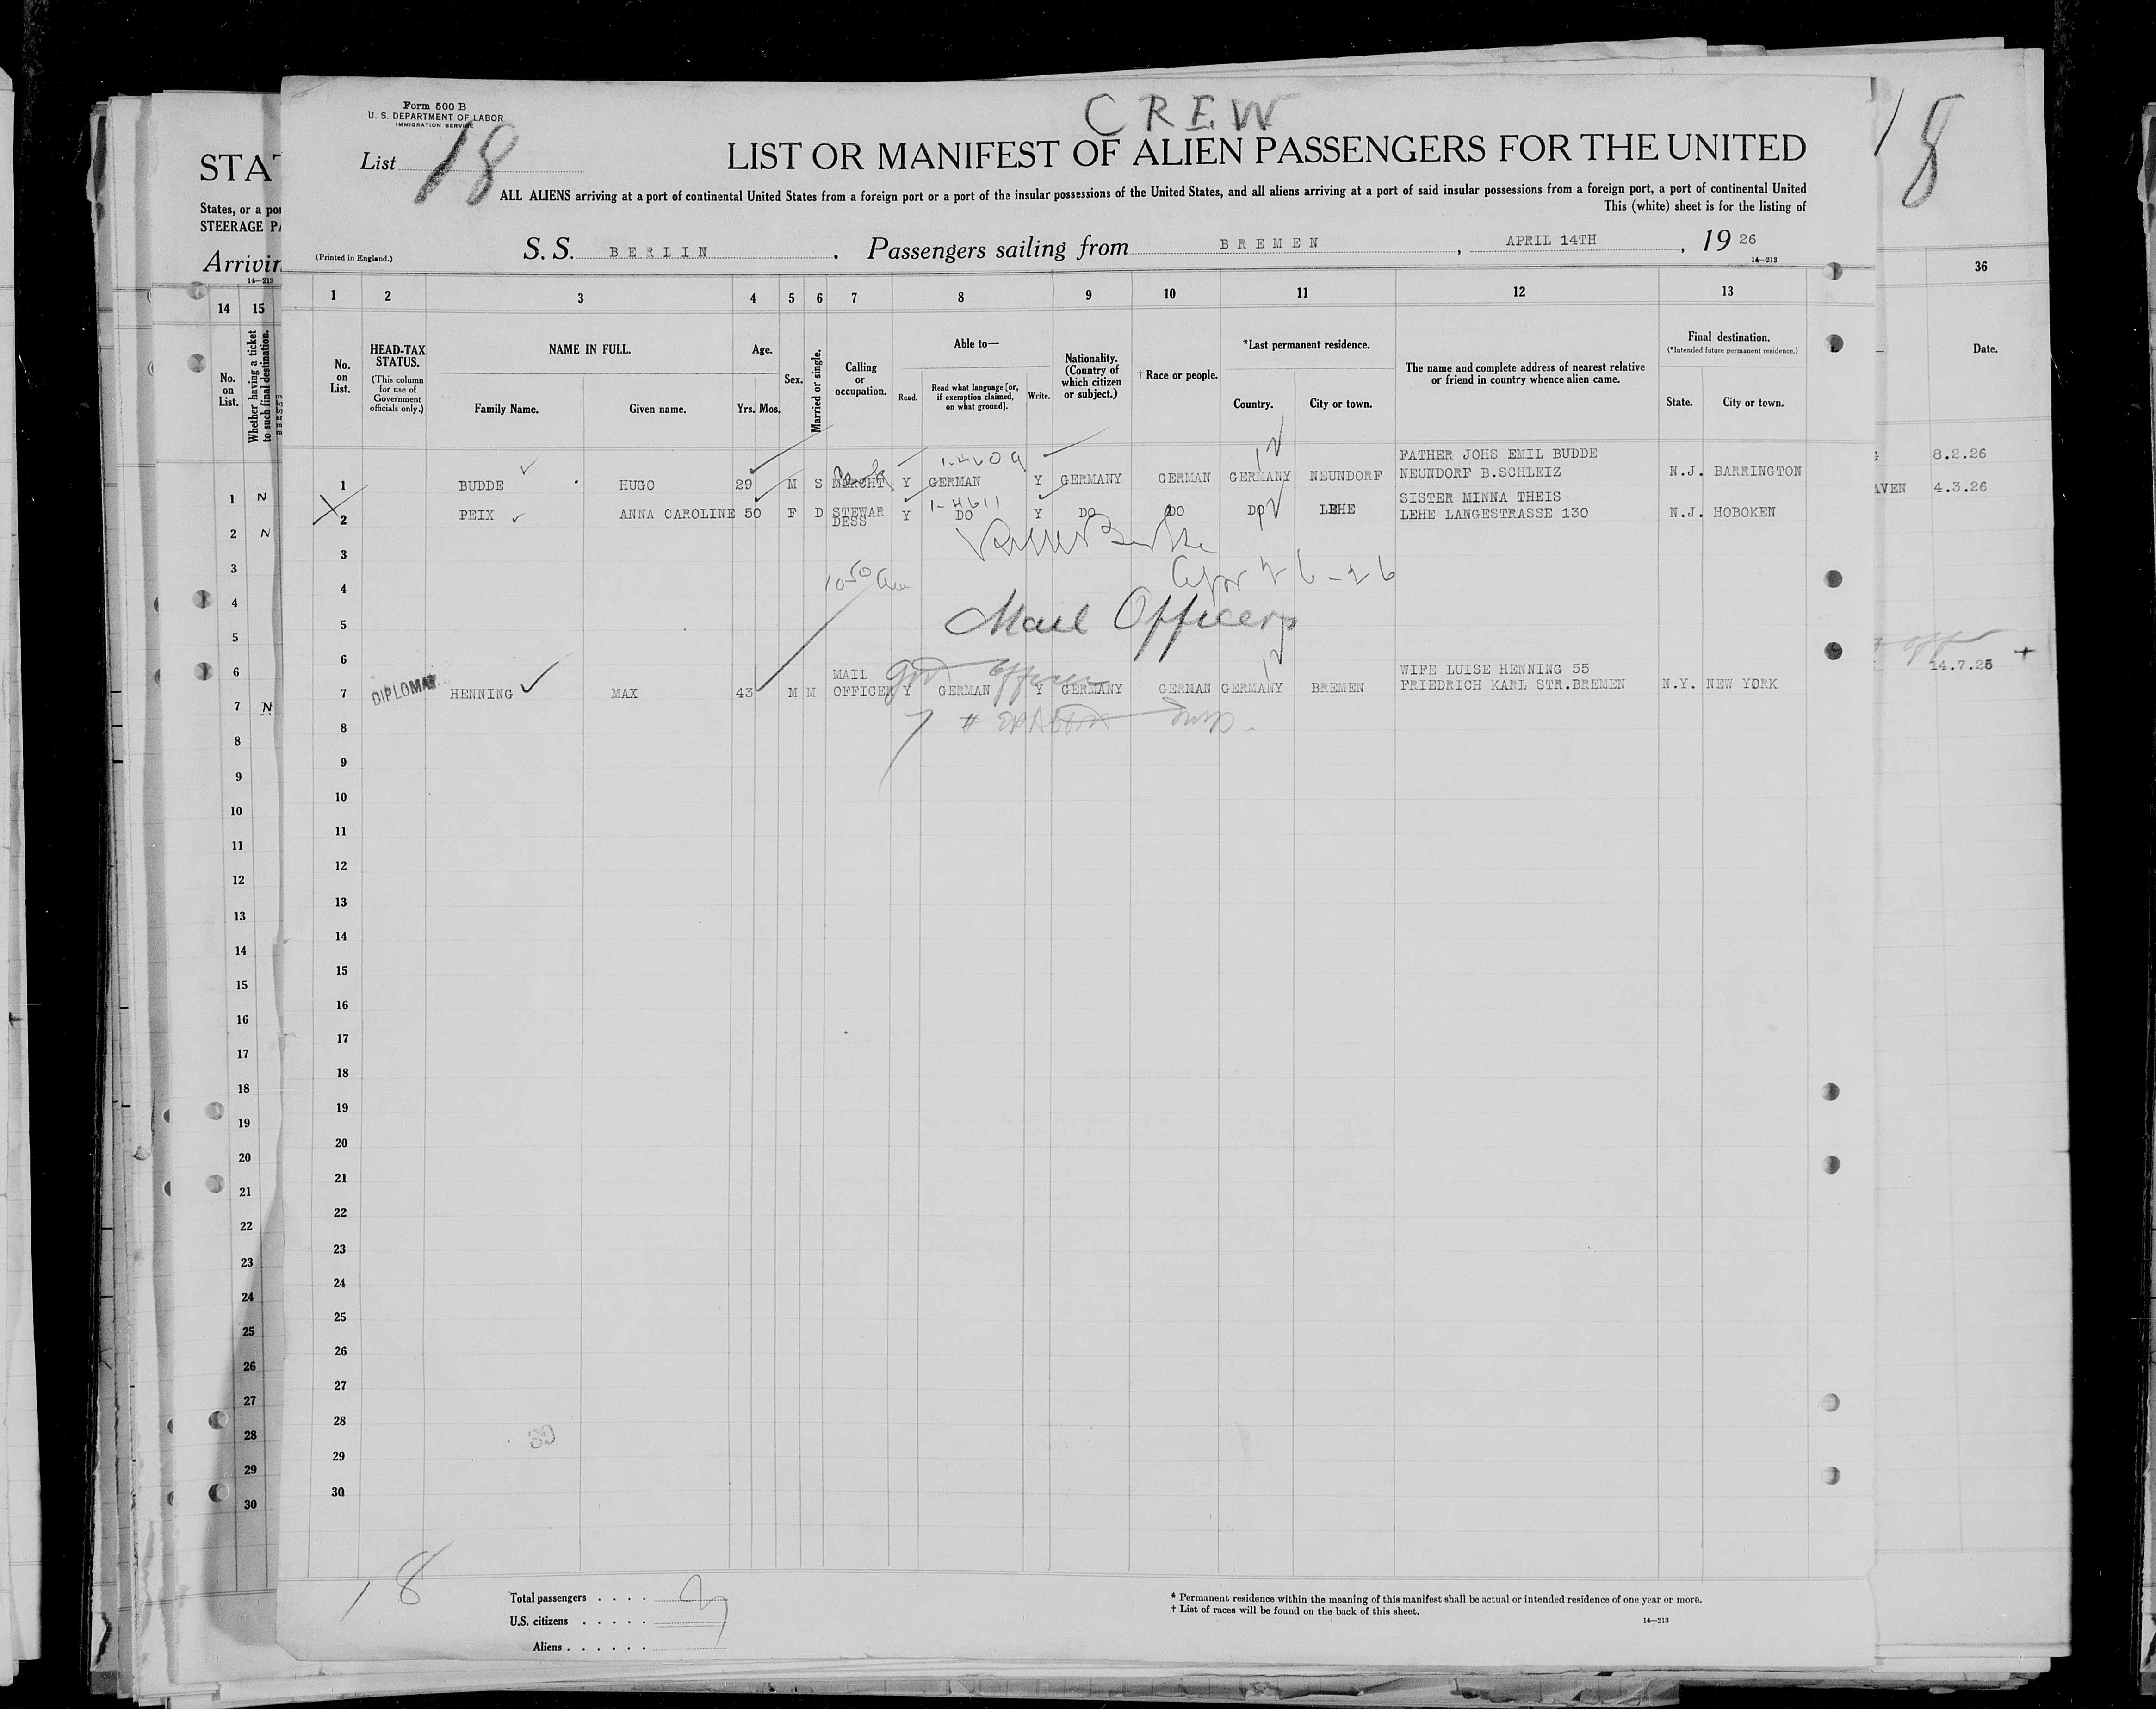 Form 500 B
U. S. DEPARTMENT OF LABOR
IMMIGRATION SERVICE
CREW
List 18
LIST OR MANIFEST OF ALIEN PASSENGERS FOR THE UNITED
ALL ALIENS arriving at a port of continental United States from a foreign port or a port of the insular possessions of the United States, and all aliens arriving at a port of said insular possessions from a foreign port, a port of continental United
This (white) sheet is for the listing of
(Printed in England.)
S. S. BERLIN. Passengers sailing from BREMEN, APRIL 14TH, 19 26
14—213
1 2 3 4 5 6 7 8 9 10 11 12 13
No. on List.
HEAD-TAX STATUS.
(This column for use of Government officials only.)
NAME IN FULL.
Family Name. Given name.
Age.
Yrs. Mos.
Sex.
Married or single.
Calling or occupation.
Able to—
Read. Read what language [or, if exemption claimed, on what ground]. Write.
Nationality. (Country of which citizen or subject.)
† Race or people.
*Last permanent residence.
Country. City or town.
The name and complete address of nearest relative or friend in country whence alien came.
Final destination.
(*Intended future permanent residence.)
State. City or town.
FATHER JOHS EMIL BUDDE
1 BUDDE HUGO 29 M S MERCHT Y GERMAN Y GERMANY GERMAN GERMANY NEUNDORF NEUNDORF B.SCHLEIZ N.J. BARRINGTON
1-4611
SISTER MINNA THEIS
2 PEIX ANNA CAROLINE 50 F D STEWARDESS Y DO Y DO DO DO LEHE LEHE LANGESTRASSE 130 N.J. HOBOKEN
3
4
Apr 26-26
5 Mail Officers
6
MAIL WIFE LUISE HENNING 55
7 DIPLOMAT HENNING MAX 43 M M OFFICER Y GERMAN Y GERMANY GERMAN GERMANY BREMEN FRIEDRICH KARL STR.BREMEN N.Y. NEW YORK
8
9
10
11
12
13
14
15
16
17
18
19
20
21
22
23
24
25
26
27
28
29
30
18
Total passengers
U.S. citizens
Aliens
* Permanent residence within the meaning of this manifest shall be actual or intended residence of one year or more.
† List of races will be found on the back of this sheet.
14—213
STA
States, or a por
STEERAGE PA
Arrivin
14—213
14 15
No. on List.
Whether having a ticket to such final destination.
1 N
2 N
3
4
5
6
7 N
8
9
10
11
12
13
14
15
16
17
18
19
20
21
22
23
24
25
26
27
28
29
30
18
36
Date.
8.2.26
AVEN 4.3.26
off
14.7.25